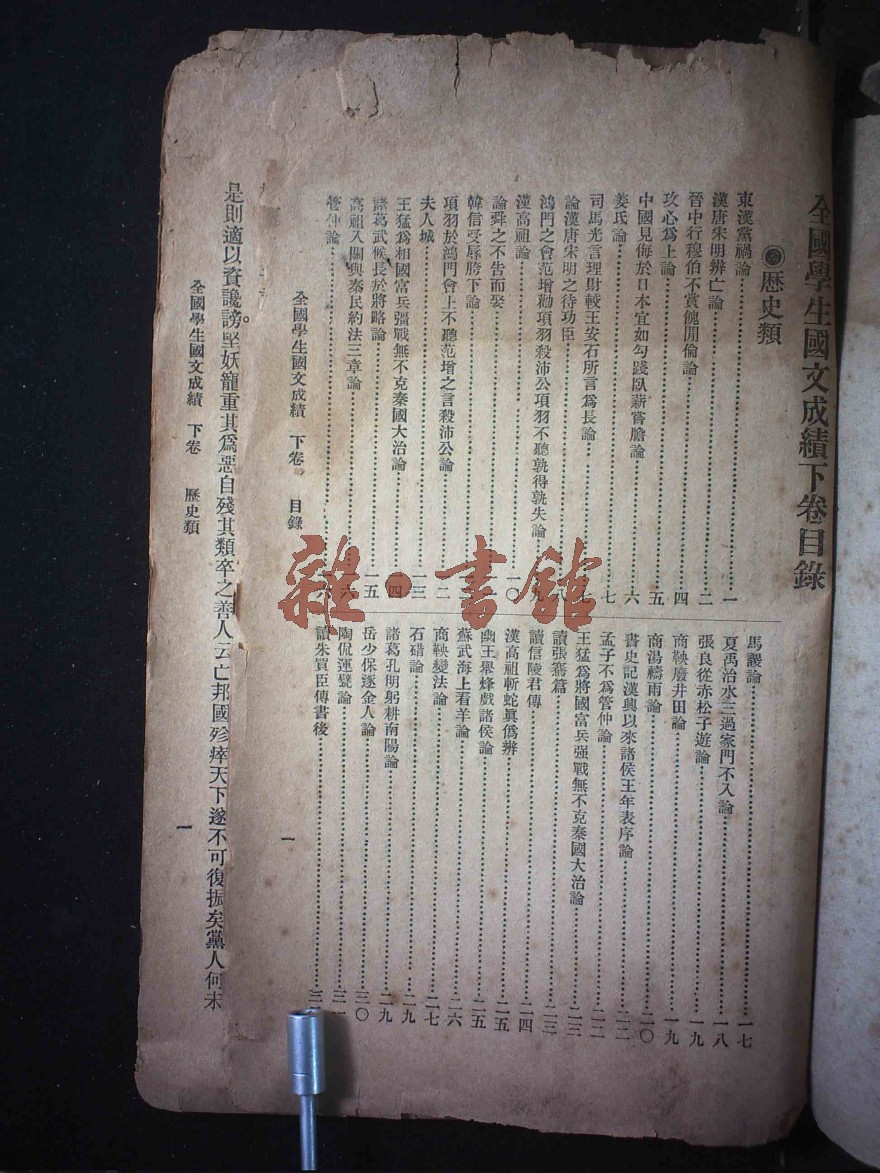 全國學生國文成績下卷目錄
歷史類
東漢黨禍論 一
漢唐宋明辨亡論 二
晉中行穆伯不賞餽聞倫論 四
攻心爲上論 五
中國見侮於日本宜如勾踐臥薪嘗膽論 六
姜氏論 七
司馬光言理財較王安石所言爲長論 七
論漢唐宋明之待功臣 八
鴻門之會范增勸項羽殺沛公項羽不聽孰得孰失論 九
漢高祖論 一〇
論舜之不告而娶
韓信受辱胯下論
項羽於鴻門會上不聽范增之言殺沛公論 二
夫人城 一三
王猛爲相國富兵彊戰無不克秦國大治論 四
諸葛武候長於將略論 一五
高祖入關與秦民約法三章論 六
管仲論
馬謖論 一七
夏禹治水三過家門不入論 一八
張良從赤松子遊論 一九
商鞅廢井田論 一九
商湯禱雨論 二〇
書史記漢興以來諸侯王年表序論 二二
孟子不爲管仲論 二二
王猛爲將國富兵强戰無不克秦國大治論 二三
讀張騫篇 二三
讀信陵君傳 二四
漢高祖斬蛇眞僞辨 二五
幽王舉烽戲諸侯論 二五
蘇武海上看羊論 二六
商鞅變法論 二七
石碏論 二九
諸葛孔明躬耕南陽論 二九
岳少保逐金人論 三〇
陶侃運甓論 三一
讀朱買臣傳書後
全國學生國文成績 下卷 目錄 一
是則適以資讒謗。堅妖寵重其爲惡自殘其類卒之善人云亡邦國殄瘁天下遂不可復振矣黨人何未
全國學生國文成績 下卷 歷史類 一
雜·書館